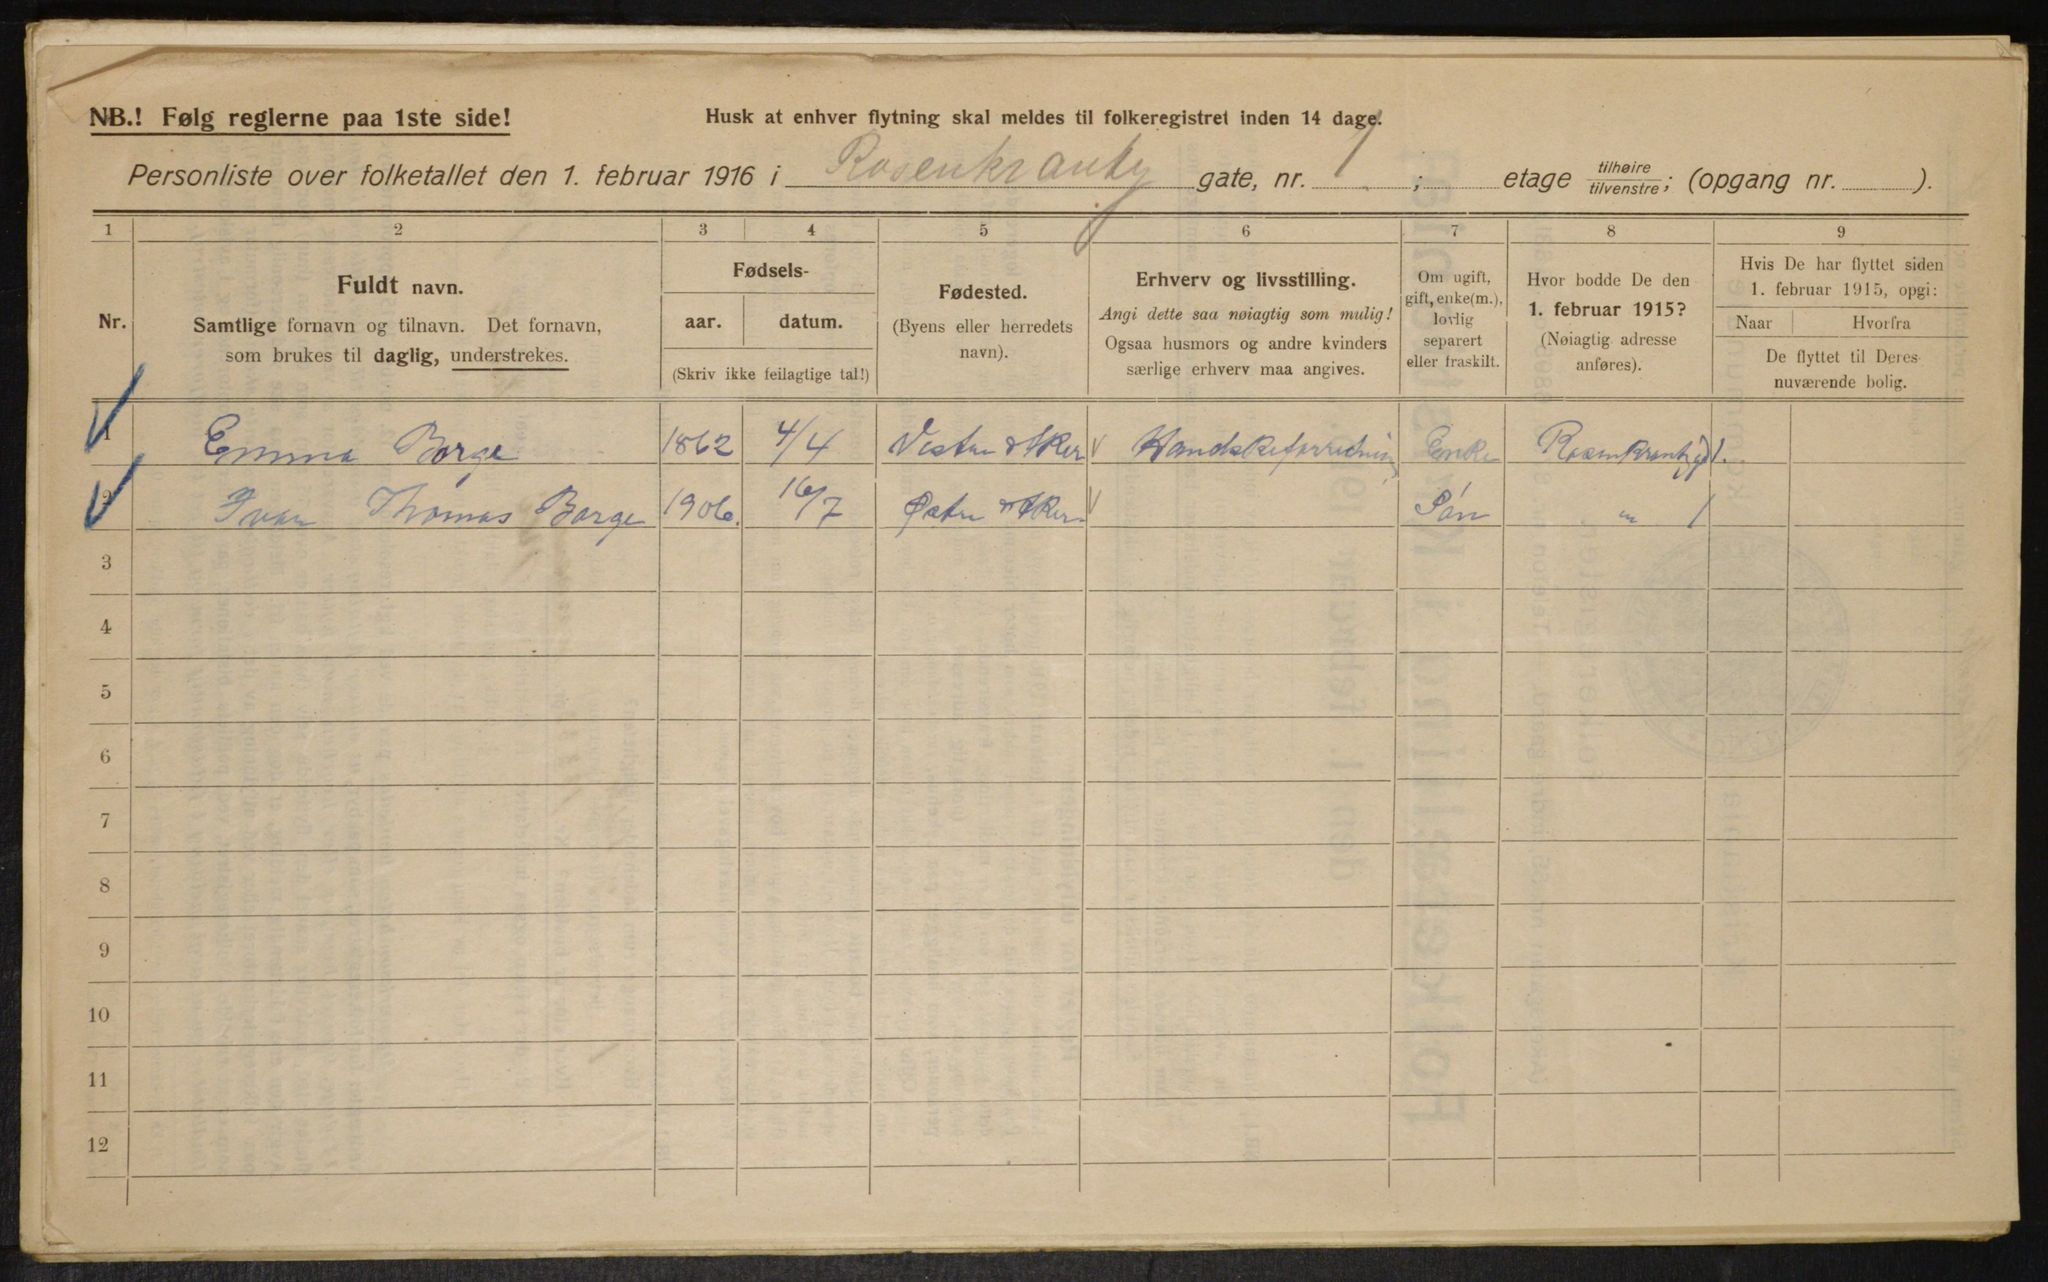 NB.! Følg reglerne paa 1ste side!
Husk at enhver flytning skal meldes til folkeregistret inden 14 dage.
Personliste over folketallet den 1. februar 1916 i Rosenkrantz gate, nr. 1 ; etage tilhøire/tilvenstre; (opgang nr. ).
1 2 3 4 5 6 7 8 9
Nr.
Fuldt navn.
Samtlige fornavn og tilnavn. Det fornavn,
som brukes til daglig, understrekes.
Fødsels-
aar. datum.
(Skriv ikke feilagtige tal!)
Fødested.
(Byens eller herredets
navn).
Erhverv og livsstilling.
Angi dette saa nøiagtig som mulig!
Ogsaa husmors og andre kvinders
særlige erhverv maa angives.
Om ugift,
gift, enke(m.),
lovlig
separert
eller fraskilt.
Hvor bodde De den
1. februar 1915?
(Nøiagtig adresse
anføres).
Hvis De har flyttet siden
1. februar 1915, opgi:
Naar Hvorfra
De flyttet til Deres
nuværende bolig.
1 Emma Borge 1862 4/4 Vestre Aker Handskeforretning Enke Rosenkrantzgd 1.
2 Ivar Thomas Borge 1906. 16/7 Østre Aker Sön " 1
3
4
5
6
7
8
9
10
11
12